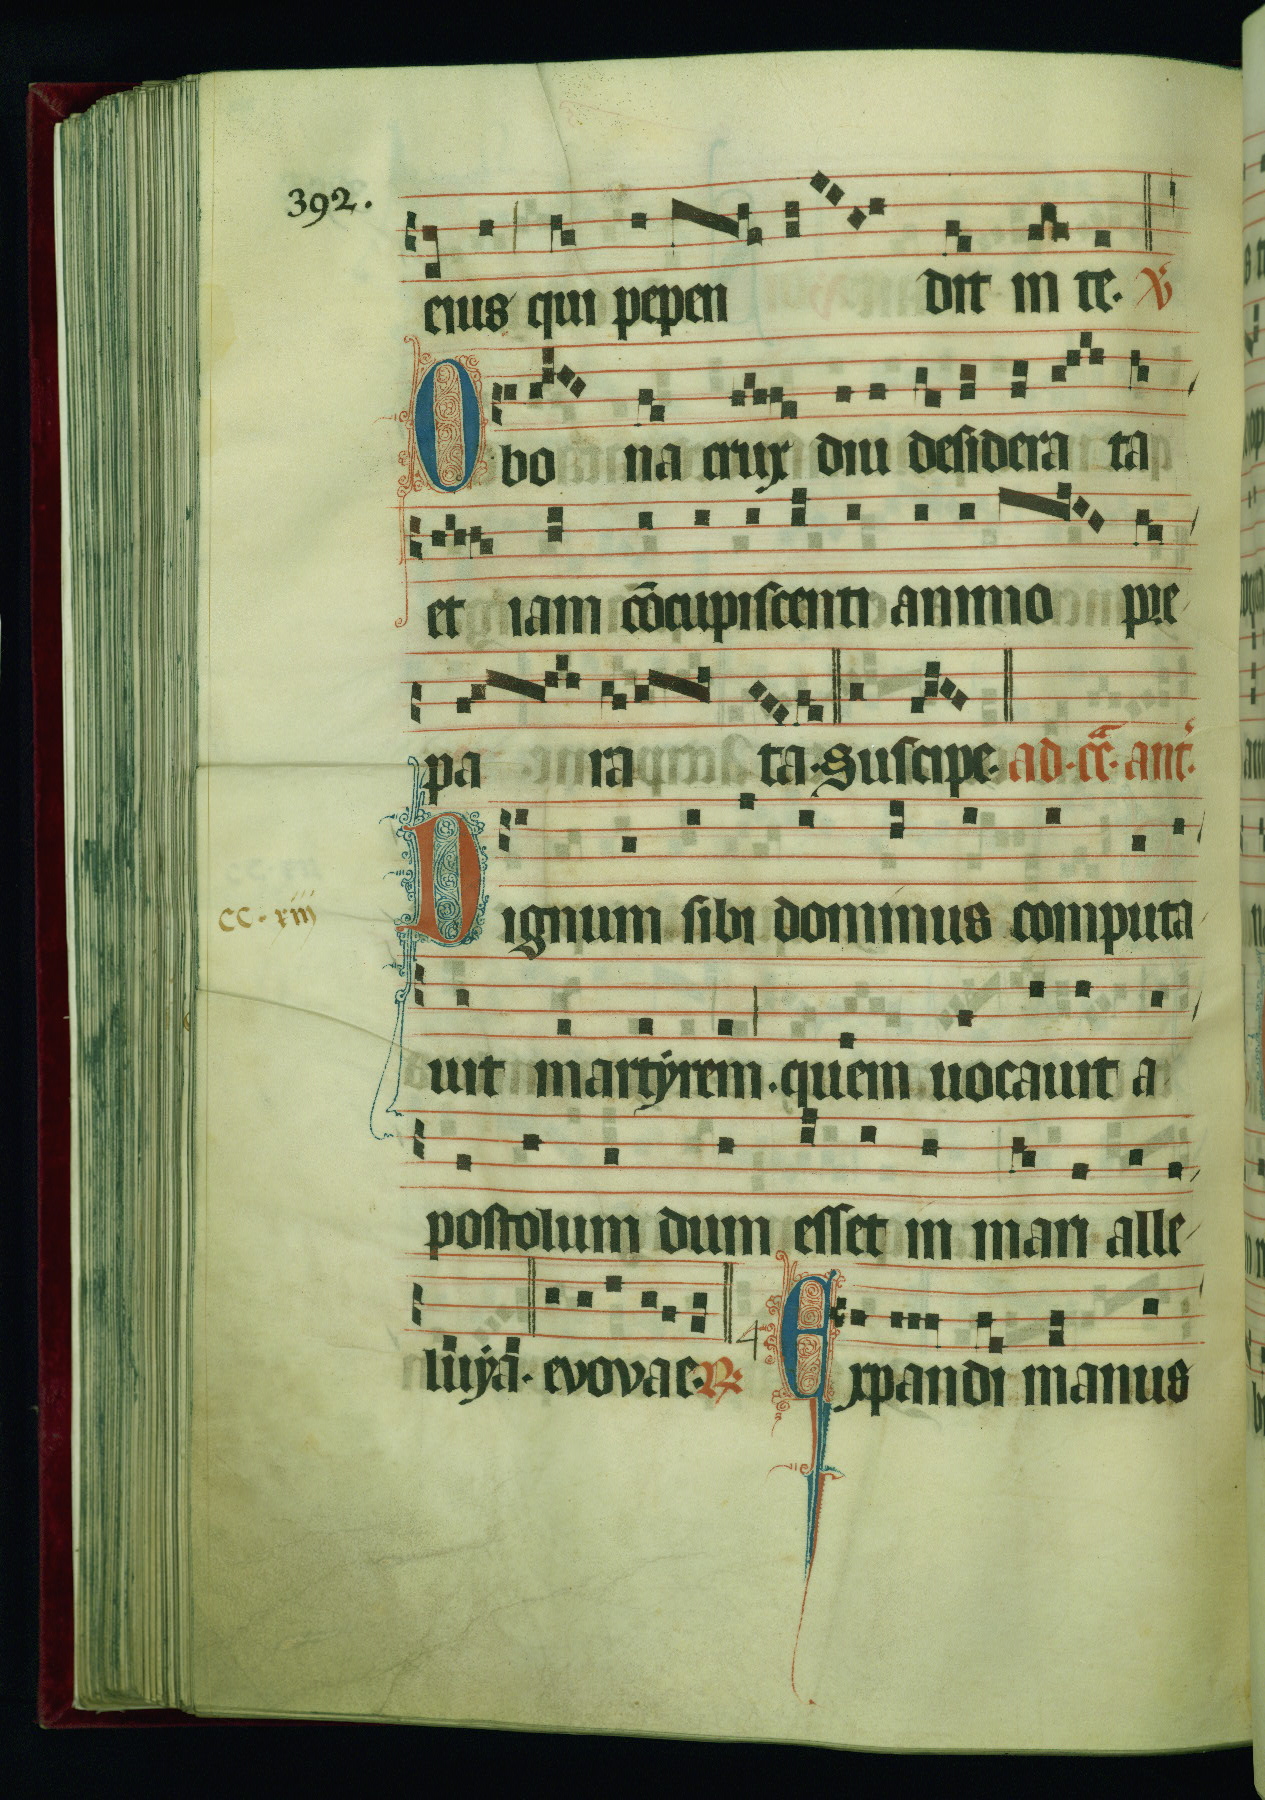 392.
eius qui pepen dit in te. V
O bo na crux diu desidera ta
et iam cōcupiscenti animo pre
pa ra ta. Suscipe. ad. cẽ. ant.
CC. xiij
Dignum sibi dominus computa
uit martyrem. quem uocauit a
postolum dum esset in mari alle
luiya. evovae. R. 4 Expandi manus